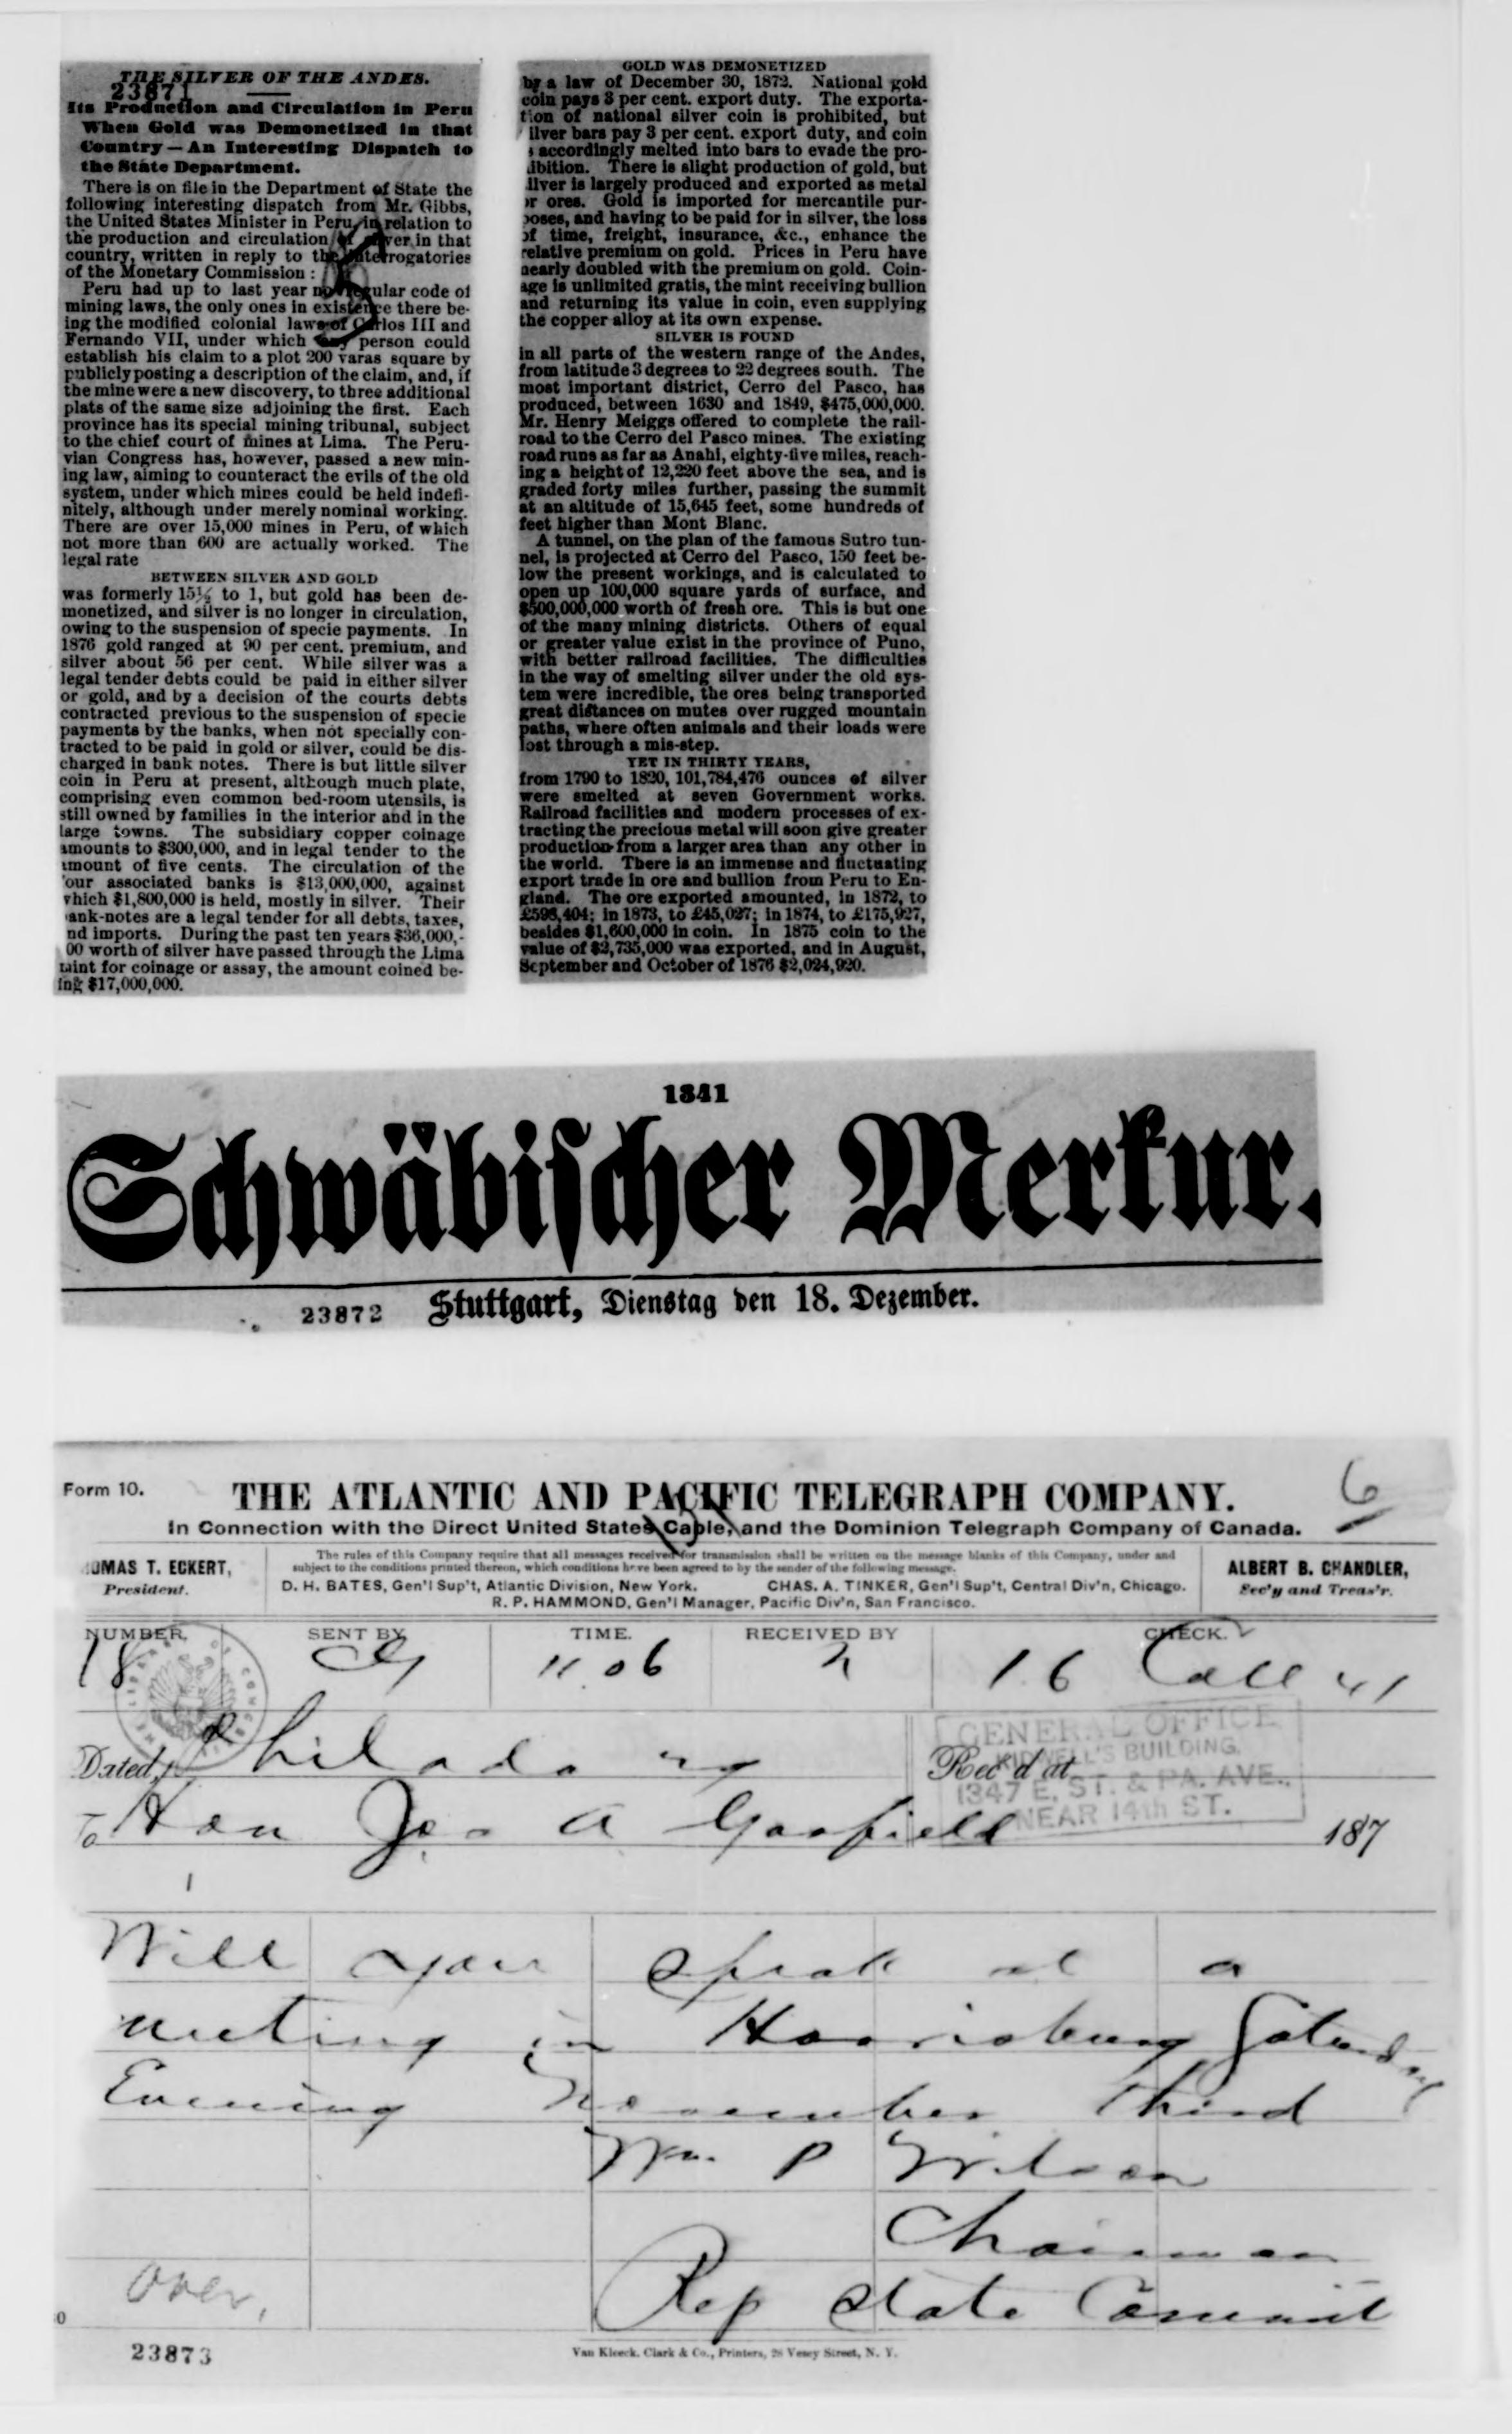 THE SILVER OF THE ANDES.
23871
Its Production and Circulation in Peru
When Gold was Demonetized in that
Country—An Interesting Dispatch to
the State Department.
There is on file in the Department of State the
following interesting dispatch from Mr. Gibbs,
the United States Minister in Peru, in relation to
the production and circulation of silver in that
country, written in reply to the interrogatories
of the Monetary Commission:
Peru had up to last year no regular code of
mining laws, the only ones in existence there be-
ing the modified colonial laws of Carlos III and
Fernando VII, under which any person could
establish his claim to a plot 200 varas square by
publicly posting a description of the claim, and, if
the mine were a new discovery, to three additional
plats of the same size adjoining the first. Each
province has its special mining tribunal, subject
to the chief court of mines at Lima. The Peru-
vian Congress has, however, passed a new min-
ing law, aiming to counteract the evils of the old
system, under which mines could be held indefi-
nitely, although under merely nominal working.
There are over 15,000 mines in Peru, of which
not more than 600 are actually worked. The
legal rate
BETWEEN SILVER AND GOLD
was formerly 15½ to 1, but gold has been de-
monetized, and silver is no longer in circulation,
owing to the suspension of specie payments. In
1876 gold ranged at 90 per cent. premium, and
silver about 56 per cent. While silver was a
legal tender debts could be paid in either silver
or gold, and by a decision of the courts debts
contracted previous to the suspension of specie
payments by the banks, when not specially con-
tracted to be paid in gold or silver, could be dis-
charged in bank notes. There is but little silver
coin in Peru at present, although much plate,
comprising even common bed-room utensils, is
still owned by families in the interior and in the
large towns. The subsidiary copper coinage
amounts to $300,000, and in legal tender to the
amount of five cents. The circulation of the
four associated banks is $13,000,000, against
which $1,800,000 is held, mostly in silver. Their
ank-notes are a legal tender for all debts, taxes,
nd imports. During the past ten years $36,000,-
00 worth of silver have passed through the Lima
mint for coinage or assay, the amount coined be-
ing $17,000,000.
GOLD WAS DEMONETIZED
by a law of December 30, 1872. National gold
coin pays 3 per cent. export duty. The exporta-
tion of national silver coin is prohibited, but
ilver bars pay 3 per cent. export duty, and coin
s accordingly melted into bars to evade the pro-
ibition. There is slight production of gold, but
ilver is largely produced and exported as metal
or ores. Gold is imported for mercantile pur-
poses, and having to be paid for in silver, the loss
of time, freight, insurance, &c., enhance the
relative premium on gold. Prices in Peru have
nearly doubled with the premium on gold. Coin-
age is unlimited gratis, the mint receiving bullion
and returning its value in coin, even supplying
the copper alloy at its own expense.
SILVER IS FOUND
in all parts of the western range of the Andes,
from latitude 3 degrees to 22 degrees south. The
most important district, Cerro del Pasco, has
produced, between 1630 and 1849, $475,000,000.
Mr. Henry Meiggs offered to complete the rail-
road to the Cerro del Pasco mines. The existing
road runs as far as Anahi, eighty-five miles, reach-
ing a height of 12,220 feet above the sea, and is
graded forty miles further, passing the summit
at an altitude of 15,645 feet, some hundreds of
feet higher than Mont Blanc.
A tunnel, on the plan of the famous Sutro tun-
nel, is projected at Cerro del Pasco, 150 feet be-
low the present workings, and is calculated to
open up 100,000 square yards of surface, and
$500,000,000 worth of fresh ore. This is but one
of the many mining districts. Others of equal
or greater value exist in the province of Puno,
with better railroad facilities. The difficulties
in the way of smelting silver under the old sys-
tem were incredible, the ores being transported
great distances on mutes over rugged mountain
paths, where often animals and their loads were
lost through a mis-step.
YET IN THIRTY YEARS,
from 1790 to 1820, 101,784,476 ounces of silver
were smelted at seven Government works.
Railroad facilities and modern processes of ex-
tracting the precious metal will soon give greater
production from a larger area than any other in
the world. There is an immense and fluctuating
export trade in ore and bullion from Peru to En-
gland. The ore exported amounted, in 1872, to
£598,404; in 1873, to £45,027; in 1874, to £175,927,
besides $1,600,000 in coin. In 1875 coin to the
value of $2,735,000 was exported, and in August,
September and October of 1876 $2,024,920.
1841
Schwäbischer Merkur.
23872 Stuttgart, Dienstag den 18. Dezember.
6
Form 10. THE ATLANTIC AND PACIFIC TELEGRAPH COMPANY.
In Connection with the Direct United States Cable, and the Dominion Telegraph Company of Canada.
OMAS T. ECKERT,
President.
The rules of this Company require that all messages received for transmission shall be written on the message blanks of this Company, under and
subject to the conditions printed thereon, which conditions have been agreed to by the sender of the following message.
D. H. BATES, Gen'l Sup't, Atlantic Division, New York. CHAS. A. TINKER, Gen'l Sup't, Central Div'n, Chicago.
R. P. HAMMOND, Gen'l Manager, Pacific Div'n, San Francisco.
ALBERT B. CHANDLER,
Sec'y and Treas'r.
NUMBER. SENT BY TIME. RECEIVED BY CHECK.
18 11.06 16 Coll 41
GENERAL OFFICE
KIDWELL'S BUILDING,
1347 E. ST. & PA. AVE.,
NEAR 14th ST.
Dated, Philada Rec'd at
To Hon Jas A Garfield 187
Will you speak at a
meeting in Harrisburg Saturday
Evening November third
Wm. P Wilson
Chairman
Rep State Commit
over.
23873
Van Kleeck, Clark & Co., Printers, 28 Vesey Street, N. Y.